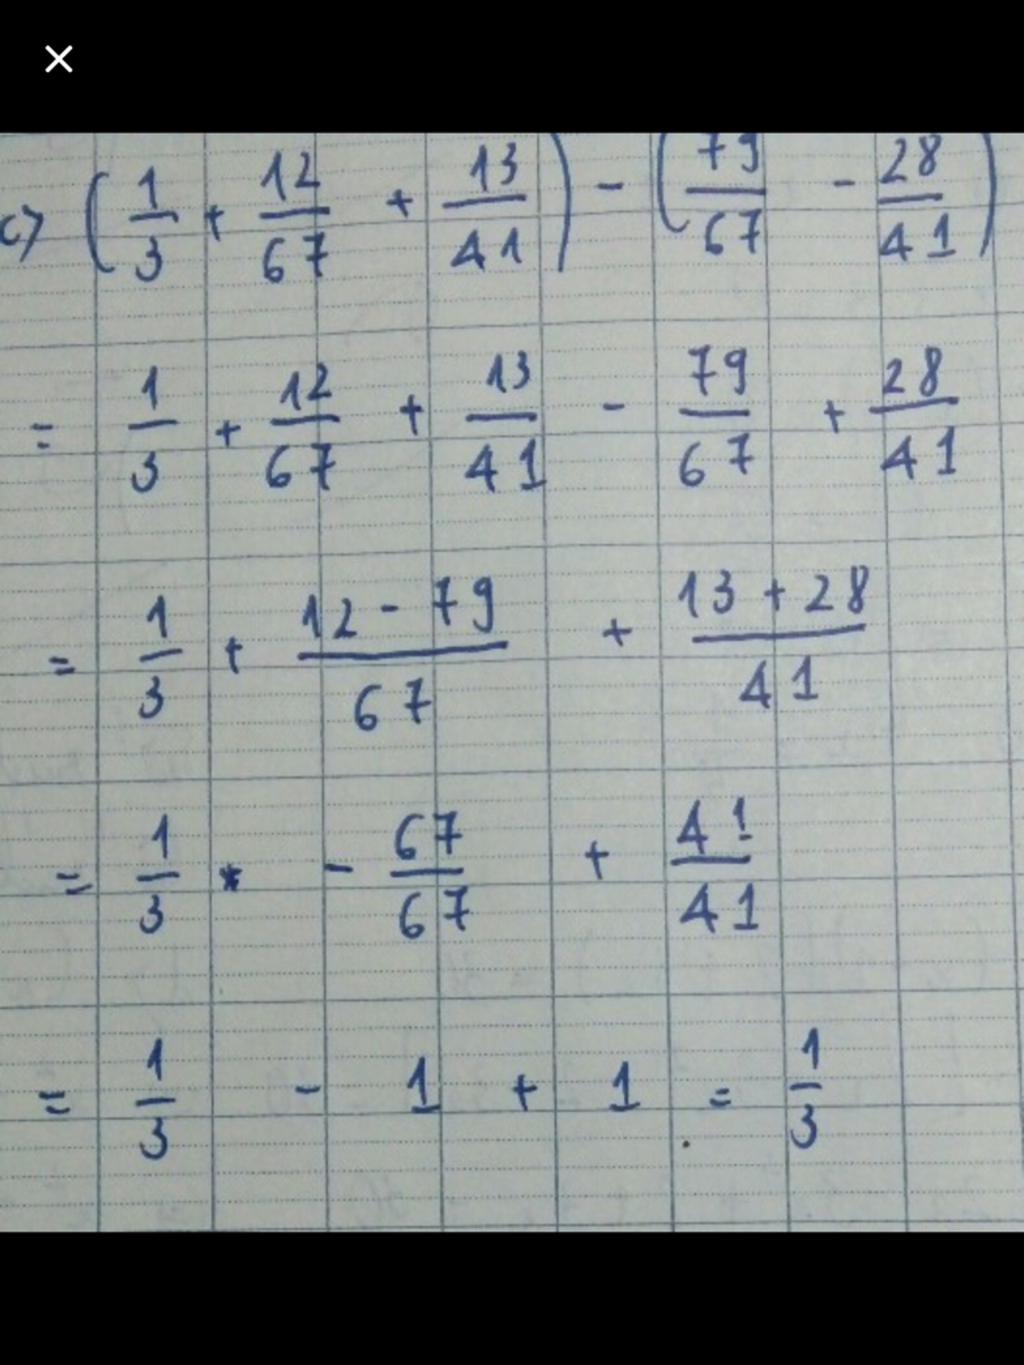 c) (1/3 + 12/67 + 13/41) - (79/67 - 28/41)
= 1/3 + 12/67 + 13/41 - 79/67 + 28/41
= 1/3 + (12 - 79)/67 + (13 + 28)/41
= 1/3 - 67/67 + 41/41
= 1/3 - 1 + 1 = 1/3